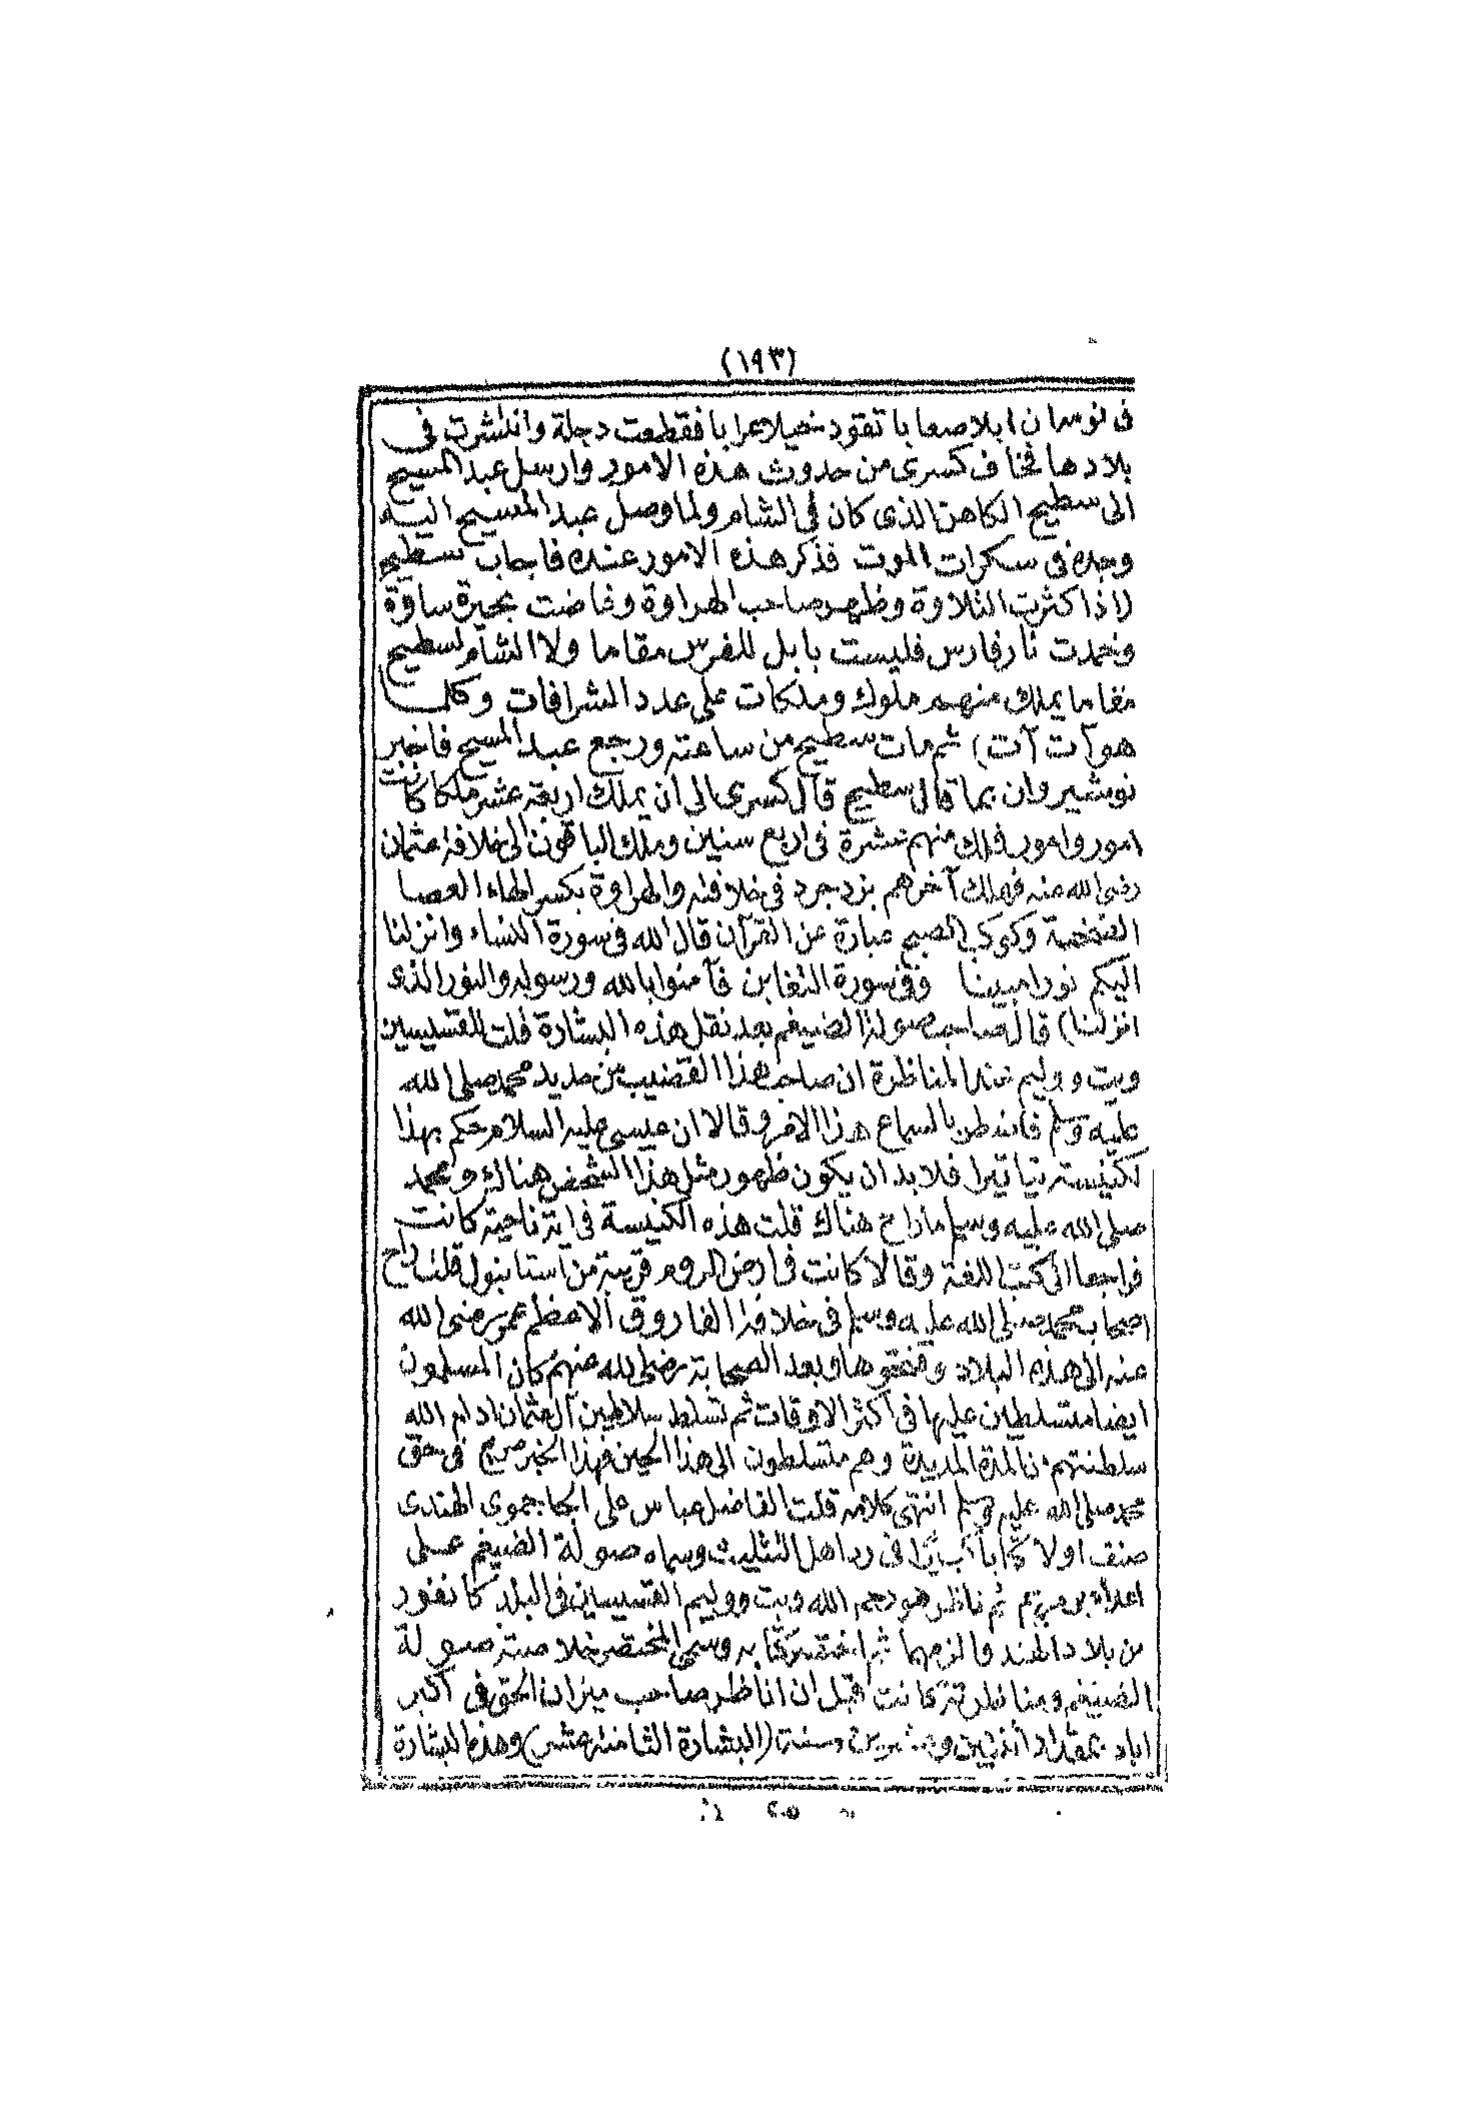 (١٩٣)
فى نومه ان ابلا صعابا تقود خيلا عرابا فقطعت دجلة وانتشرت فى
بلادها فخاف كسرى من حدوث هذه الامور وارسل عبد المسيح
الى سطيح الكاهن الذى كان فى الشام ولما وصل عبد المسيح اليه
وجده فى سكرات الموت فذكر هذه الامور عنده فاجاب سطيح
(اذا كثرت التلاوة وظهر صاحب الهراوة وغاضت بحيرة ساوة
وخمدت نار فارس فليست بابل للفرس مقاما ولا الشام لسطيح
مقاما يملك منهم ملوك وملكات على عدد الشرافات وكلما
هو آت آت) ثم مات سطيح من ساعته ورجع عبد المسيح فاخبر
نوشيروان بما قال سطيح قال كسرى الى ان يملك اربعة عشر ملكا كانت
امور وامور فملك منهم عشرة فى اربع سنين وملك الباقون الى خلافة عثمان
رضى الله عنه فهلك آخرهم يزدجرد فى خلافته والهراوة بكسر الهاء العصا
الضخمة وكوكب الصبح عبارة عن القرآن قال الله فى سورة النساء وانزلنا
اليكم نورا مبينا وفى سورة التغابن فآمنوا بالله ورسوله والنور الذى
انزلنا) قال صاحب صولة الضيغم بعد نقل هذه البشارة قلت للقسيسين
ويت ووليم عند المناظرة ان صاحب هذا القضيب من حديد محمد صلى الله
عليه وسلم فاضطربا بسماع هذا الامر وقالا ان عيسى عليه السلام حكم بهذا
لكنيسة تياتيرا فلا بد ان يكون ظهور مثل هذا الشخص هناك ومحمد
صلى الله عليه وسلم ما راح هناك قلت هذه الكنيسة فى اية ناحية كانت
فراجعا الى كتب اللغة وقالا كانت فى ارض الروم قريبة من استانبول قلت راح
اصحاب محمد صلى الله عليه وسلم فى خلافة الفاروق الاعظم عمر رضى الله
عنه الى هذه البلاد وفتحوها وبعد الصحابة رضى الله عنهم كان المسلمون
ايضا متسلطين عليها فى اكثر الاوقات ثم تسلط سلاطين آل عثمان ادام الله
سلطنتهم من المدة المديدة وهم متسلطون الى هذا الحين فهذا الخبر صريح فى حق
محمد صلى الله عليه وسلم انتهى كلامه قلت الفاضل عباس على الجاجموى الهندى
صنف اولا كتابا كبيرا فى رد اهل التثليث وسماه صولة الضيغم على
اعداء بن مريم ثم ناظر هو رحمه الله ويت ووليم القسيسين فى البلد كانفور
من بلاد الهند والزمهما ثم اختصر كتابه وسمى المختصر خلاصة صولة
الضيغم ومناظرته كانت قبل ان اناظر صاحب ميزان الحق فى اكبر
اباد بمقدار اثنين وعشرين سنة (البشارة الثامنة عشر) وهذه البشارة